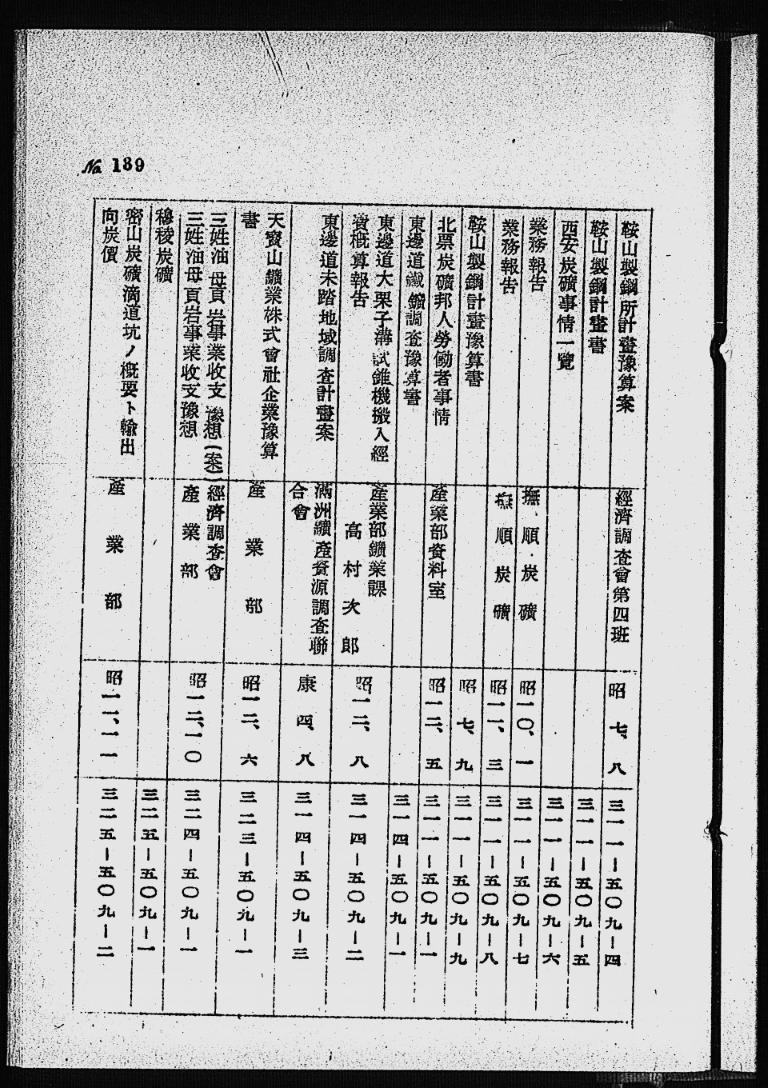 No 139
鞍山製鋼所計畫豫算案
經濟調査會第四班
昭 七、八
三一一ー五〇九ー四
鞍山製鋼計畫書
三一一ー五〇九ー五
西安炭礦事情一覽
三一一ー五〇九ー六
業務報告
撫順炭礦
昭一〇、一
三一一ー五〇九ー七
業務報告
撫順炭礦
昭一一、三
三一一ー五〇九ー八
鞍山製鋼計畫豫算書
昭 七、九
三一一ー五〇九ー九
北票炭礦邦人勞働者事情
產業部資料室
昭一二、五
三一一ー五〇九ー一
東邊道鐵鑛調査豫算書
三一四ー五〇九ー一
東邊道大栗子溝試錐機搬入經
費概算報告
產業部鑛業課
高村次郎
昭一二、八
三一四ー五〇九ー二
東邊道未踏地域調査計畫案
滿洲鑛產資源調査聯
合會
康 四、八
三一四ー五〇九ー三
天寶山鑛業株式會社企業豫算
書
產業部
昭一二、六
三二三ー五〇九ー一
三姓油母頁岩事業收支豫想(案)
三姓油母頁岩事業收支豫想
經濟調査會
產業部
昭一二、一〇
三二四ー五〇九ー一
穆稜炭礦
三二五ー五〇九ー一
密山炭礦滴道坑ノ概要ト輸出
向炭價
產業部
昭一二、一一
三二五ー五〇九ー二